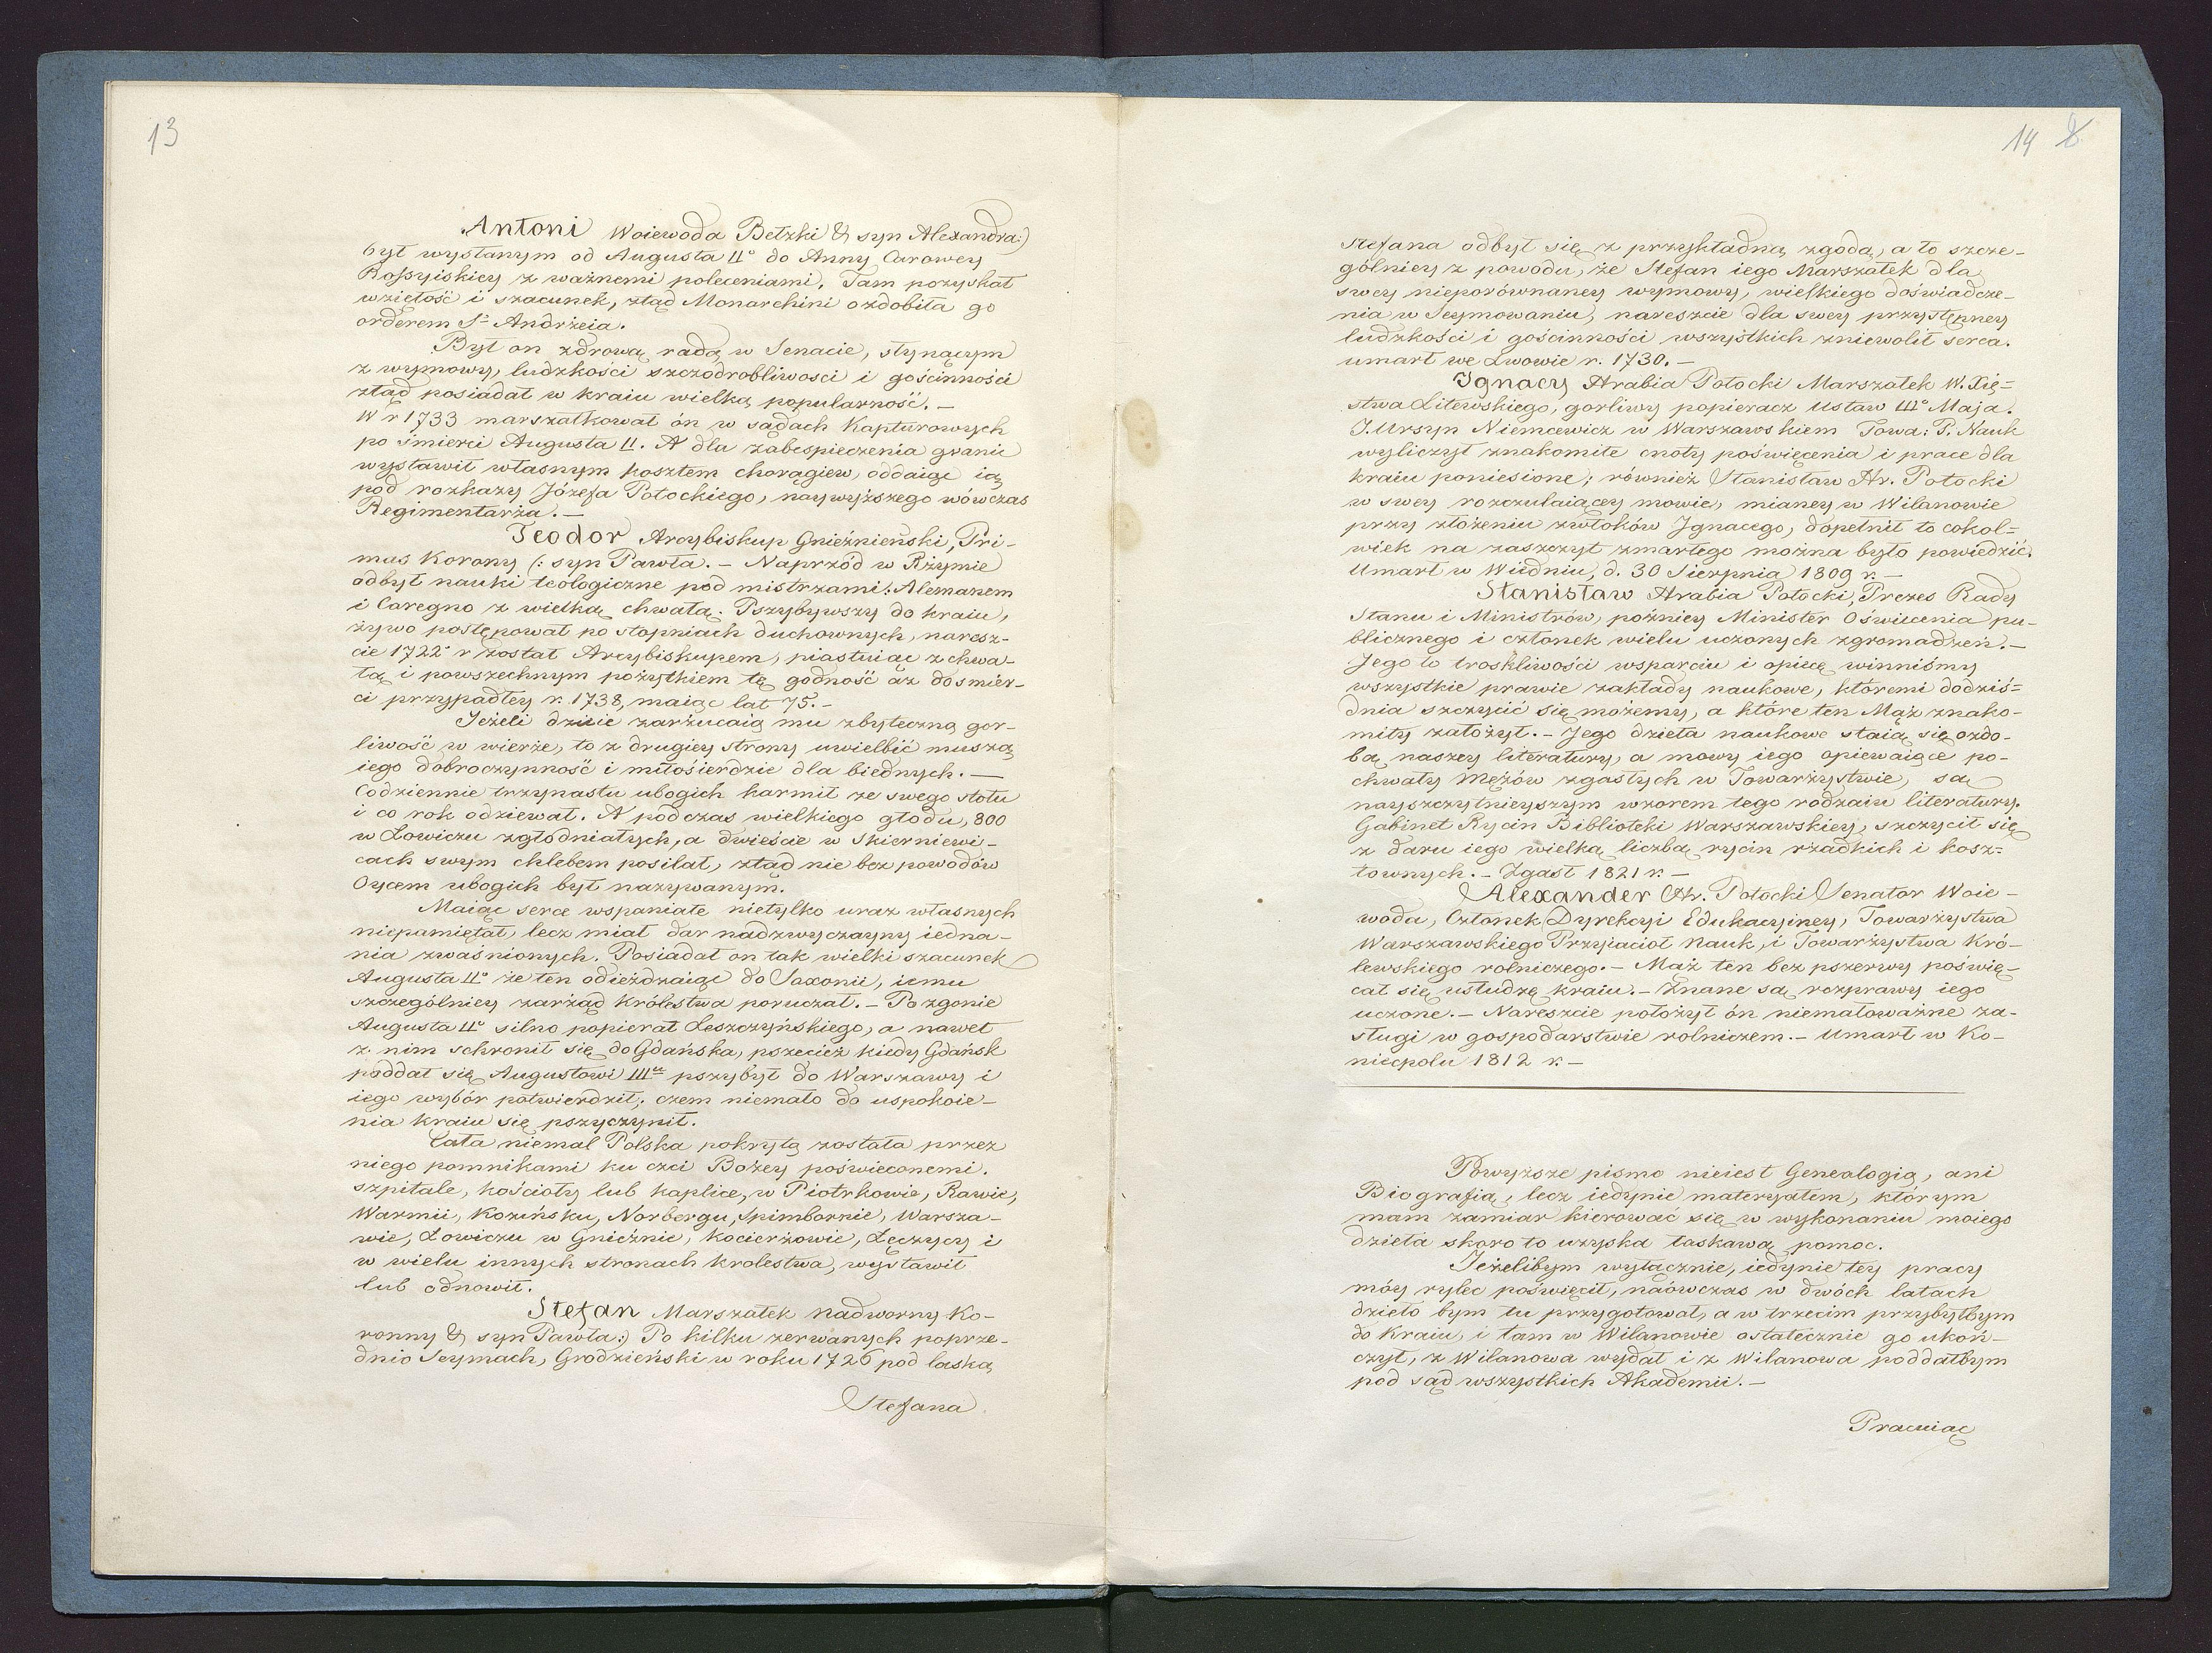 13
Antoni Woiewoda Bełzki (: syn Alexandra:)
był wysłanym od Augusta IIº do Anny Carowey
Rossyiskiey z ważnemi poleceniami. Tam pozyskał
wziętość i szacunek, ztąd Monarchini ozdobiła go
orderem Sº Andrzeia.
Był on zdrową radą w Senacie, słynącym
z wymowy, ludzkości szczodrobliwosci i gościnności
ztąd posiadał w kraiu wielką popularność. —
W r 1733 marszałkował ón w sądach Kapturowych
po śmierci Augusta II. A dla zabespieczenia granic
wystawił własnym kosztem chorągiew, oddaiąc ią
pod rozkazy Józefa Potockiego, naywyższego wówczas
Regimentarza. —
Teodor Arcybiskup Gnieźnieński, Pri-
mas Korony (: syn Pawła. — Naprzód w Rzymie
odbył nauki teologiczne pod mistrzami: Alemanem
i Caregno z wielką chwałą. Pszybywszy do kraiu,
żywo postępował po stopniach duchownych, naresz-
cie 1722º r został Arcybiskupem, piastuiąc z chwa-
łą i powszechnym pożytkiem tę godność aż do smier-
ci przypadłey r. 1738, maiąc lat 75. —
Jeżeli dzieie zarzucaią mu zbyteczną gor-
liwość w wierze, to z drugiey strony uwielbić muszą
iego dobroczynność i miłosierdzie dla biednych. —
Codziennie trzynastu ubogich karmił ze swego stołu
i co rok odziewał. A podczas wielkiego głodu, 800
w Łowiczu zgłodniałych, a dwieście w Skierniewi-
cach swym chlebem posilał, ztąd nie bez powodów
Oycem ubogich był nazywanym.
Maiąc serce wspaniałe nietylko uraz własnych
niepamiętał, lecz miał dar nadzwyczayny iedna-
nia zwaśnionych. Posiadał on tak wielki szacunek
Augusta IIº że ten odieżdzaiąc do Saxonii, iemu
szczególniey zarząd Królestwa poruczał. — Po zgonie
Augusta IIº silno popierał Leszczyńskiego, a nawet
z nim schronił się do Gdańska, pszecież kiedy Gdańsk
poddał się Augustowi III pszybył do Warszawy i
iego wybór potwierdził; czem niemało do uspokoie-
nia kraiu się pszyczynił.
Cała niemal Polska pokrytą została przez
niego pomnikami ku czci Bożey poświeconemi.
szpitale, kościoły lub kaplice, w Piotrkowie, Rawie,
Warmii, Kozińsku, Norbergu, Spimbornie, Warsza-
wie, Łowiczu w Gnieźnie, Kocierzowie, Łęczycy i
w wielu innych stronach krolestwa, wystawił
lub odnowił.
Stefan Marszałek nadworny Ko-
ronny (: syn Pawła:) Po kilku zerwanych poprze-
dnio Seymach, Grodzieński w roku 1726 pod laską
Stefana
14 8
Stefana odbył się z przykładną zgodą, a to szcze-
gólniey z powodu, że Stefan iego Marszałek dla
swey nieporównaney wymowy, wielkiego doświadcze-
nia w Seymowaniu, nareszcie dla swey przystępney
ludzkości i gościnności wszystkich zniewolił serca.
umarł we Lwowie r. 1730. —
Ignacy Hrabia Potocki Marszałek W. Xię-
stwa Litewskiego, gorliwy popieracz Ustaw IIIº Maja.
J. Ursyn Niemcewicz w Warszawskiem Towa: P. Nauk
wyliczył znakomite cnoty poświęcenia i prace dla
kraiu poniesione; również Stanisław Hr. Potocki
w swey rozczulaiącey mowie, mianey w Wilanowie
przy złożeniu zwłoków Ignacego, dopełnił to cokol-
wiek na zaszczyt zmarłego można było powiedzić.
Umarł w Wiedniu, d. 30 Sierpnia 1809 r. —
Stanisław Hrabia Potocki, Prezes Rady
Stanu i Ministrów, pożniey Minister Oświecenia pu-
blicznego i członek wielu uczonych zgromadzeń. —
Jego to troskliwości wsparciu i opiecę winniśmy
wszystkie prawie zakłady naukowe, któremi dodziś-
dnia szczycić się możemy, a które ten Mąż znako-
mity założył. — Jego dzieła naukowe staią się ozdo-
bą naszey literatury, a mowy iego opiewaiące po-
chwały Mężów zgasłych w Towarzystwie, są
nayszczytnieyszym wzorem tego rodzaiu literatury.
Gabinet Rycin Biblioteki Warszawskiey, szczycił się
z daru iego wielką liczbą rycin rzadkich i kosz-
townych. — Zgasł 1821 r. —
Alexander Hr. Potocki Senator Woie-
woda, Członek Dyrekcyi Edukacyiney, Towarzystwa
Warszawskiego Przyiacioł Nauk, i Towarzystwa Kró-
lewskiego rolniczego. — Mąż ten bez pszerwy poświę-
cał się usłudzę kraiu. — Znane są rozprawy iego
uczone. — Nareszcie położył ón niemałoważne za-
sługi w gospodarstwie rolniczem. — Umarł w Ko-
niecpolu 1812 r. —
Powyższe pismo nieiest Genealogią, ani
Biografią, lecz iedynie materyałem, którym
mam zamiar kierować się w wykonaniu moiego
dzieła skoro to uzyska łaskawą pomoc.
Jeżelibym wyłącznie, iedynie tey pracy
móy rylec poświęcił, naówczas w dwóch latach
dzieło bym tu przygotował, a w trzecim przybyłbym
do Kraiu, i tam w Wilanowie ostatecznie go ukoń-
czył, z Wilanowa wydał i z Wilanowa poddałbym
pod sąd wszystkich Akademii. —
Pracuiąc